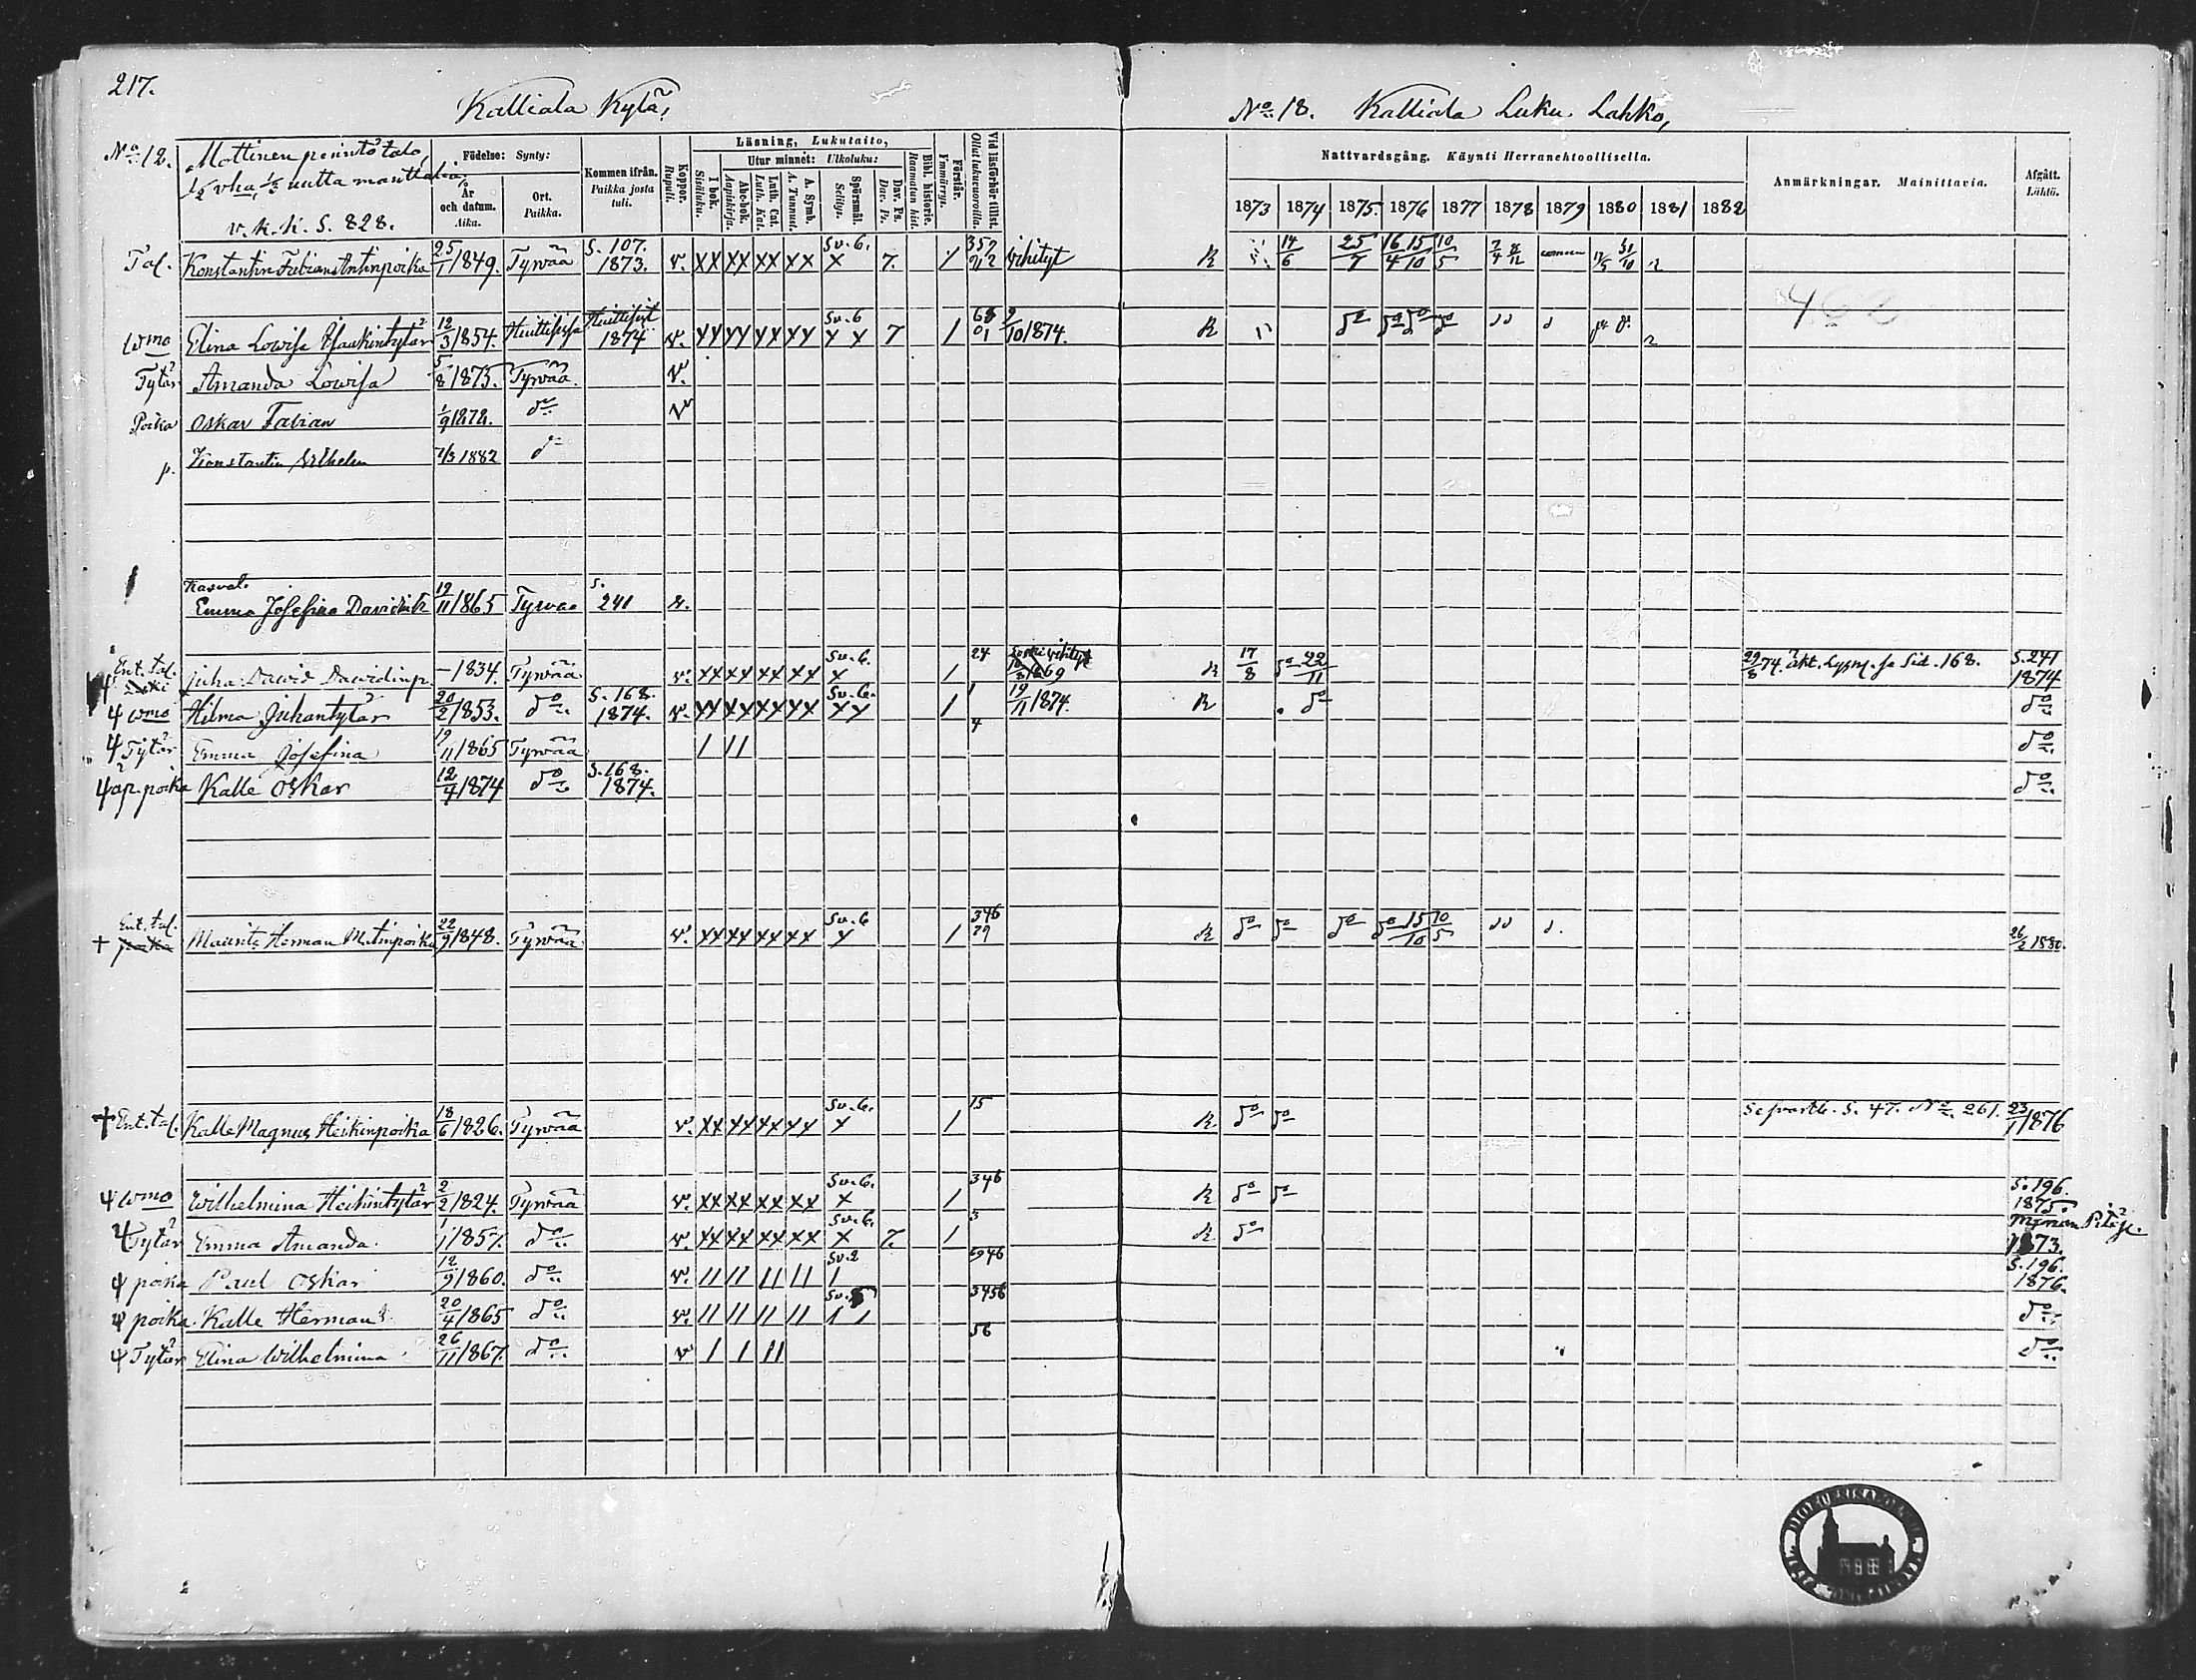 217.
Kalliala Kylä,
No 18. Kalliala Luku Lahko,
No 12. Mattinen perintö talo,
1/2 vha, 1/3 uutta manttalia.
v. k. k. S. 828.
Födelse: Synty:
År och datum. Aika.
Ort. Paikka.
Kommen ifrån. Paikka josta tuli.
Koppor. Rupuli.
Läsning, Lukutaito,
I bok. Sisäluku.
Utur minnet: Ulkoluku:
Abc-bok. Aapiskirja.
Luth. Cat. Luth. Kat.
A. Symb. A. Tunnust.
Spörsmål. Selitys.
Dav. Ps. Dav. Ps.
Bibl. historie. Raamatun hist.
Förstår. Ymmärrys.
Vid läsförhör tillst. Ollut lukuvuoroilla.
Nattvardsgång. Käynti Herranehtoollisella.
1873 1874 1875. 1876 1877 1878 1879 1880 1881 1882
Anmärkningar. Mainittavia.
Afgått. Lähtö.
Tal. Konstantin Fabians Antinpoika 25/1 1849. Tyrvää S. 107. 1873. v. XX XX XX XX Sv. 6. X 7. / vihityt R 14/6 25/7 16/4 15/10 10/5
wmo Elina Lowisa Isaakintytär 12/3 1854. Huittisissa Huittisist 1874 v. XX XX XX XX Sv. 6 X X 7 / 9/10 1874. R
Tytär Amanda Lowisa 5/8 1875. Tyrvää. v.
Poika Oskar Fabian 1/9 1878. do v
p. Konstantin Wilhelm 7/3 1882 do
Kasvat.
Emma Josefina Davidint. 19/11 1865 Tyrvää S. 241 v.
Ent. tal. Juha Dawid Dawidinp. — 1834. Tyrvää v. XX XX XX XX Sv. 6. X / 24 R 17/8 do 22/11 29/8 74. äkt. Lysn. se Sid. 168. S. 241 1874
wmo Hilma Juhantytär 20/2 1853. do S. 168. 1874. v. XX XX XX XX Sv. 6. XX / 1 19/11 1874. R do do
Tytär Emma Josefina 19/11 1865 Tyrvää / // 4 do
äp. poika Kalle Oskar 12/4 1874 do S. 168. 1874. do
Ent. tal. poika Maurits Herman Matinpoika 22/9 1848. Tyrvää v. XX XX XX XX Sv. 6 X / 346 R do do do do 15/10 10/5 26/2 1880.
† Ent. tal. Kalle Magnus Heikinpoika 18/6 1826. Tyrvää v. XX XX XX XX Sv. 6. X / 15 R do do S. 47. No 261. 23/1 1876
wmo Wilhelmina Heikintytär 2/2 1824. Tyrvää v. XX XX XX XX Sv. 6. X / 346 R do do S. 196. 1875.
Tytär Emma Amanda. 1/1 1857. do v. XX XX XX XX Sv. 6. X 7. / 3 R do 1873.
poika Paul Oskar 12/9 1860. do v. // // // // Sv. 2 / S. 196. 1876.
poika Kalle Herman 20/4 1865 do v. // // // // Sv. 5 / / 3456 do
Tytär Elina Wilhelmina 26/11 1867. do v / / // 56 do